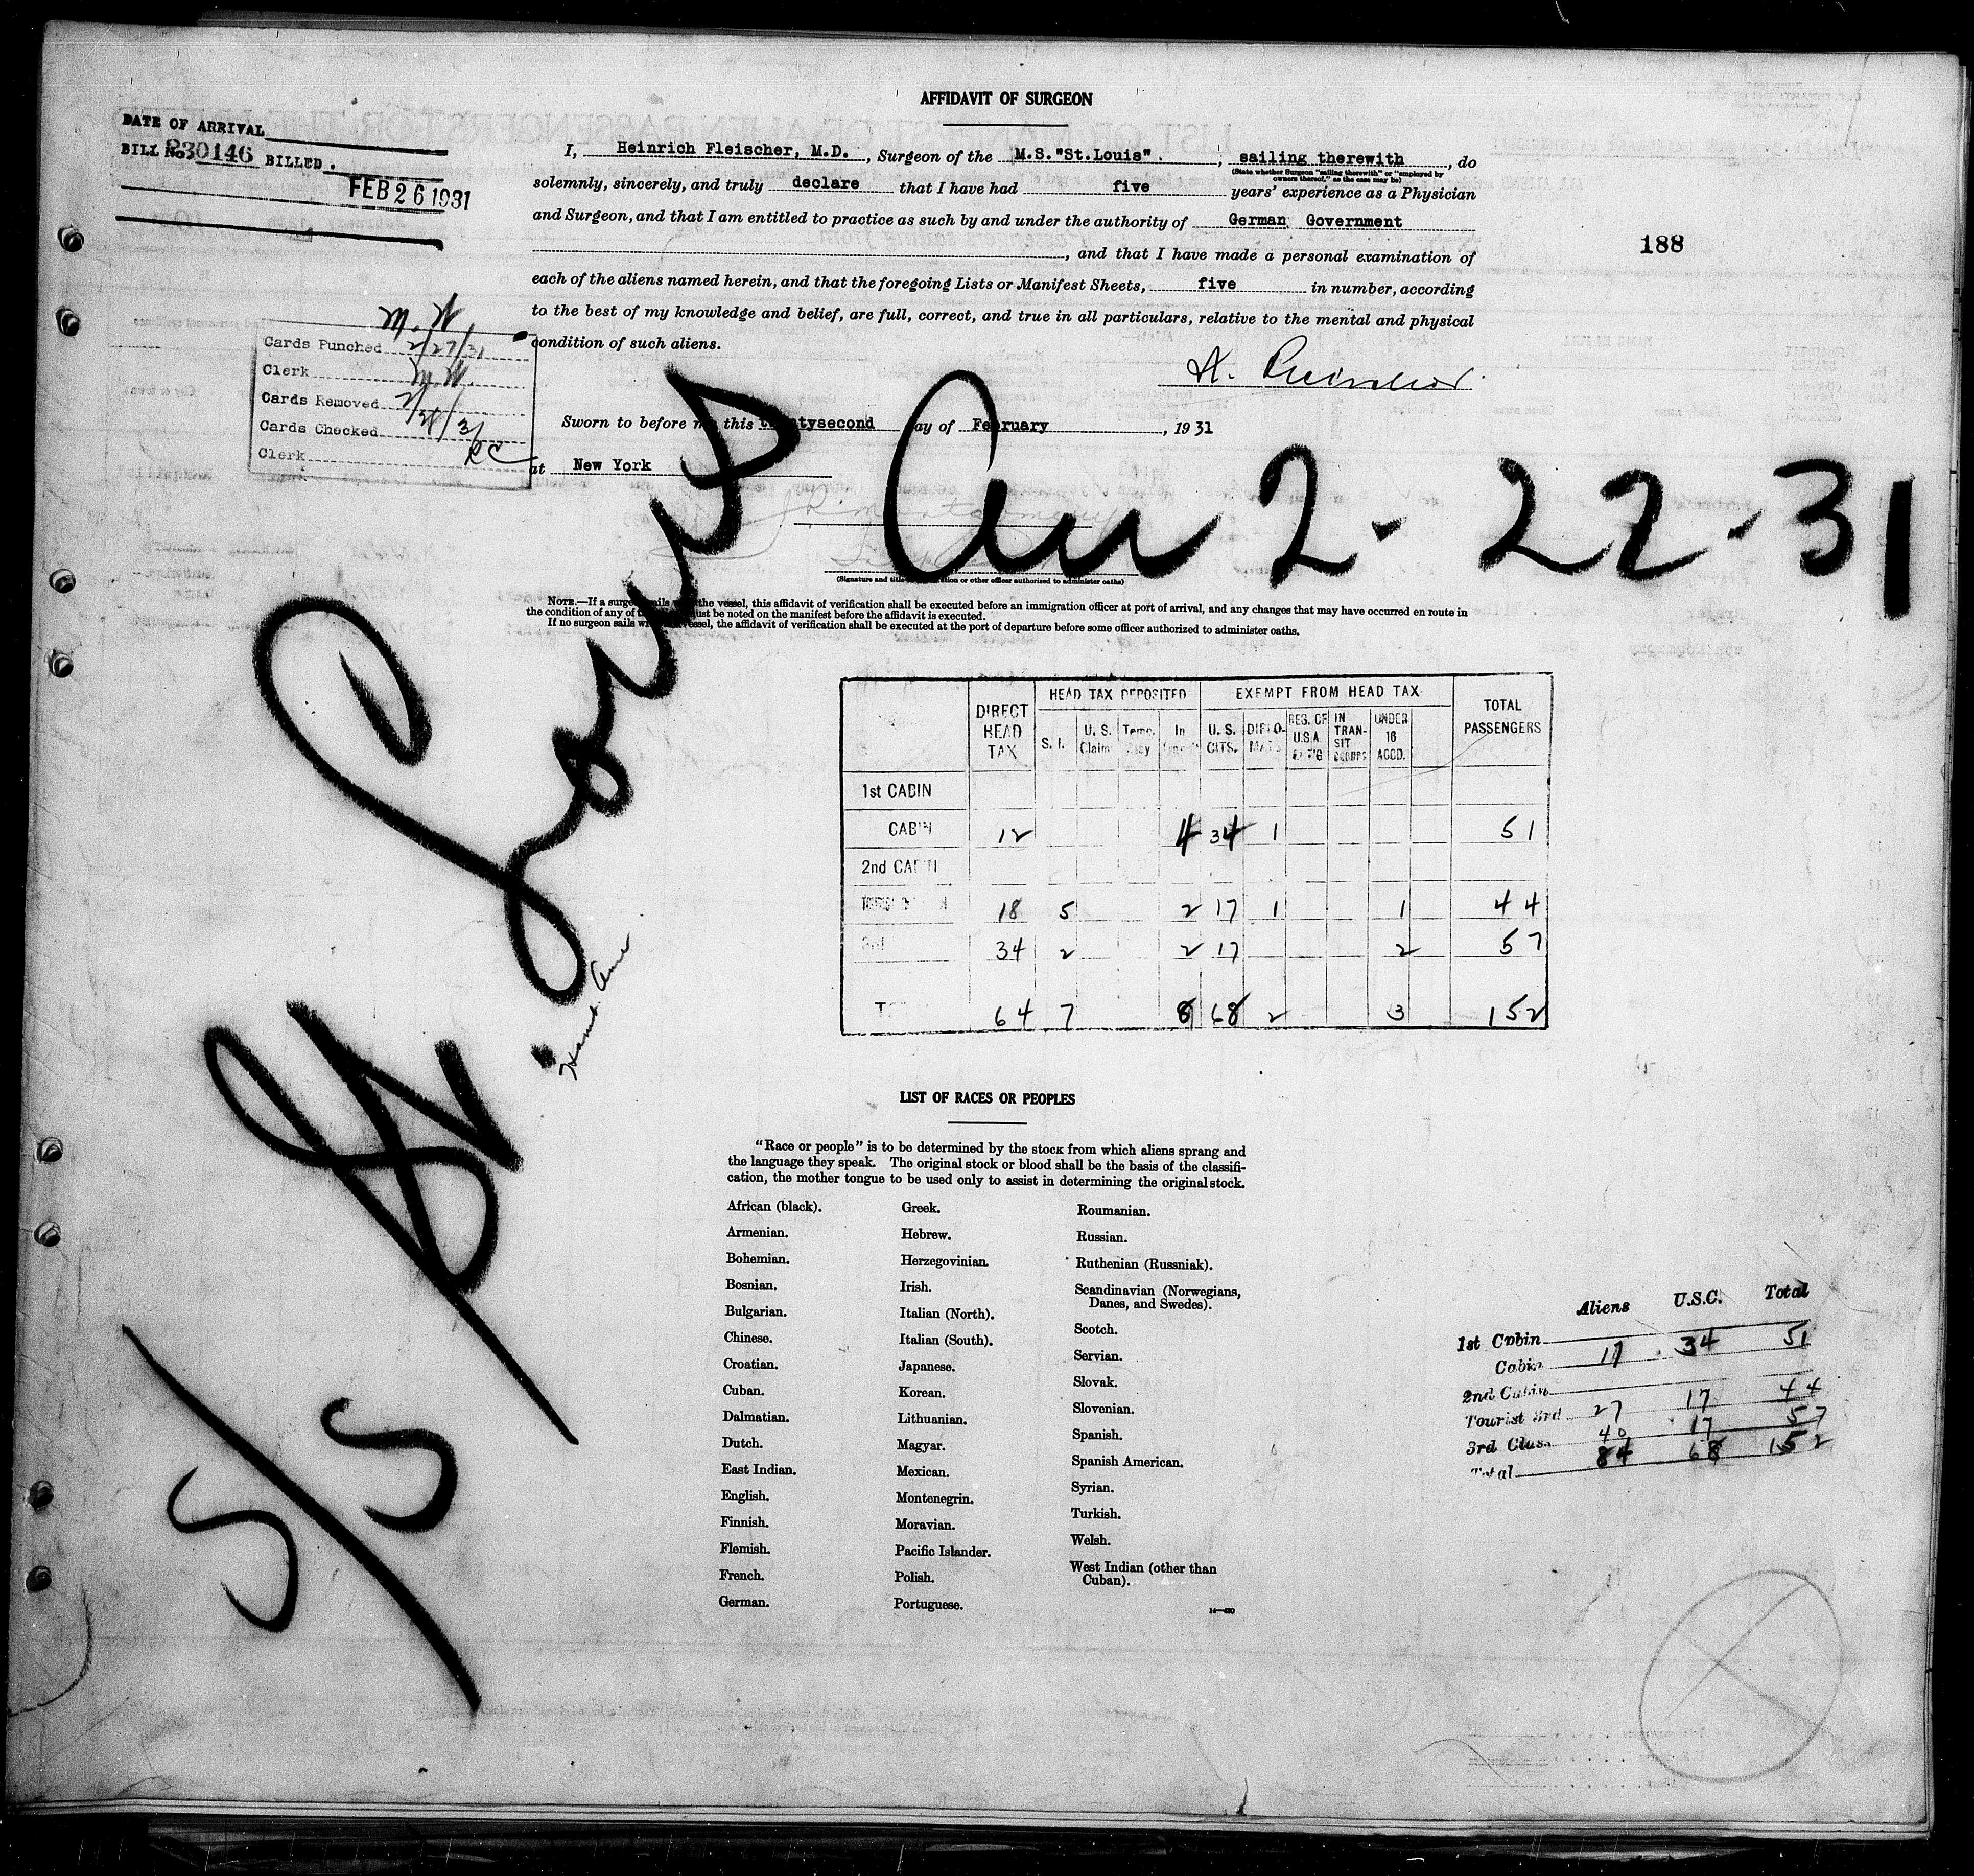 AFFIDAVIT OF SURGEON
DATE OF ARRIVAL
BILL No. 230146 BILLED.
FEB 26 1931
I, Heinrich Fleischer, M.D., Surgeon of the M.S."St.Louis", sailing therewith, do
(State whether Surgeon "sailing therewith" or "employed by
owners thereof," as the case may be)
solemnly, sincerely, and truly declare that I have had five years' experience as a Physician
and Surgeon, and that I am entitled to practice as such by and under the authority of German Government
, and that I have made a personal examination of
each of the aliens named herein, and that the foregoing Lists or Manifest Sheets, five in number, according
to the best of my knowledge and belief, are full, correct, and true in all particulars, relative to the mental and physical
condition of such aliens.
188
M.W.
Cards Punched 2/27/31
Clerk M.W.
Cards Removed
Cards Checked
Clerk RC
Sworn to before me this twentysecond day of February, 1931
at New York
Arr 2-22-31
S/S St. Louis
Hamb. Amer
(Signature and title of immigration or other officer authorized to administer oaths)
NOTE.—If a surgeon sails with the vessel, this affidavit of verification shall be executed before an immigration officer at port of arrival, and any changes that may have occurred en route in
the condition of any of the aliens must be noted on the manifest before the affidavit is executed.
If no surgeon sails with the vessel, the affidavit of verification shall be executed at the port of departure before some officer authorized to administer oaths.
DIRECT HEAD TAX HEAD TAX DEPOSITED EXEMPT FROM HEAD TAX TOTAL PASSENGERS
S. I. U. S. Claim Temp. In U. S. CITS. DIPLO-MATS RES. OF U.S.A. IN TRAN-SIT UNDER 16 ACCD.
1st CABIN
CABIN 12 4 34 1 51
2nd CABIN
18 5 2 17 1 1 44
3rd 34 2 2 17 2 57
64 7 8 68 2 3 152
LIST OF RACES OR PEOPLES
"Race or people" is to be determined by the stock from which aliens sprang and
the language they speak. The original stock or blood shall be the basis of the classifi-
cation, the mother tongue to be used only to assist in determining the original stock.
African (black).
Armenian.
Bohemian.
Bosnian.
Bulgarian.
Chinese.
Croatian.
Cuban.
Dalmatian.
Dutch.
East Indian.
English.
Finnish.
Flemish.
French.
German.
Greek.
Hebrew.
Herzegovinian.
Irish.
Italian (North).
Italian (South).
Japanese.
Korean.
Lithuanian.
Magyar.
Mexican.
Montenegrin.
Moravian.
Pacific Islander.
Polish.
Portuguese.
Roumanian.
Russian.
Ruthenian (Russniak).
Scandinavian (Norwegians,
Danes, and Swedes).
Scotch.
Servian.
Slovak.
Slovenian.
Spanish.
Spanish American.
Syrian.
Turkish.
Welsh.
West Indian (other than
Cuban).
14—430
Aliens U.S.C. Total
1st Cabin
Cabin 17 34 51
2nd Cabin
Tourist 3rd 27 17 44
3rd Class 40 17 57
Total 84 68 152